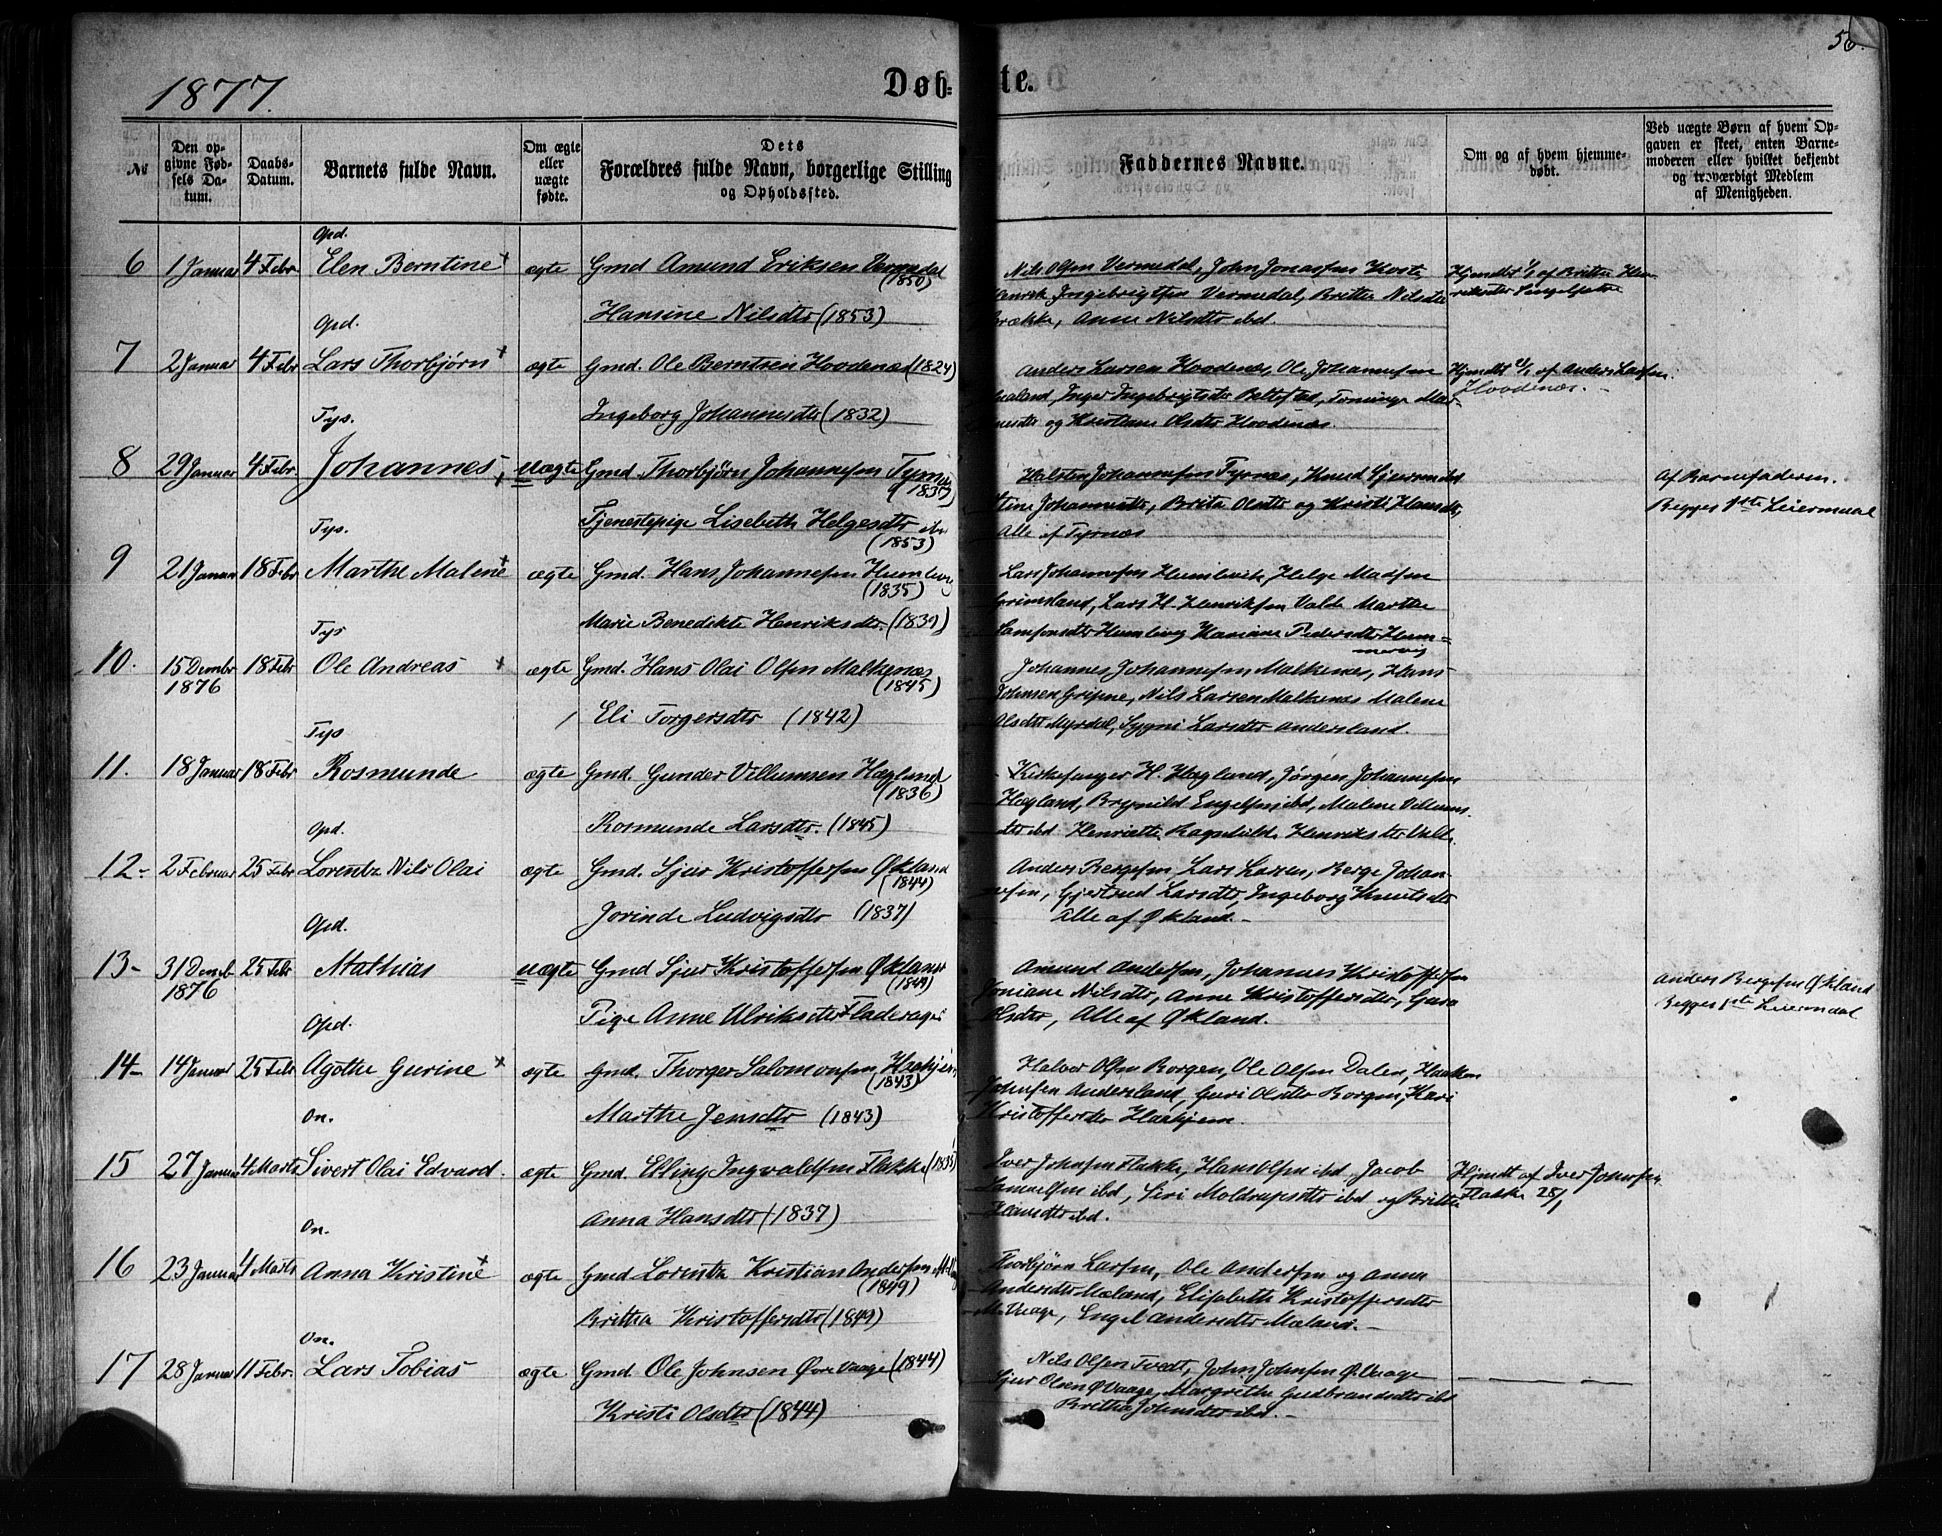 56.
1877.
Døb-te.
№ Den opgivne Fødsels Datum. Daabs-Datum. Barnets fulde Navn. Om ægte eller uægte fødte. Dets Forældres fulde Navn, borgerlige Stilling og Opholdssted. Faddernes Navne. Om og af hvem hjemmedøbt. Ved uægte Børn af hvem Opgaven er skeet, enten Barnemoderen eller hvilket bekjendt og troværdigt Medlem af Menigheden.
Opd.
6 1 Januar 4 Febr. Elen Berntine ægte Gmd Amund Eriksen Vermedal Nils Olsen Vermedal, John Jonassen Hjemdbt af Britta Hen-
(1850) Ingebrigtsen Vermedal, Britta Nilsdtr
Hansine Nilsdtr (1853) Anne Nilsdtr ibd.
Opd.
7 2 Januar 4 Febr Lars Thorbjørn ægte Gmd. Ole Berntsen Hoodenæs (1824) Anders Larsen Hoodenæs, Ole Johannesen Hjemdbt af Anders Larsen
Hoodenæs.
Inger Ingebrigtsdtr
Ingeborg Johannesdtr (1832) og Kristiane Olsdtr Hoodenæs.
Tys.
8 29 Januar 4 Febr. Johannes, uægte Gmd. Thorbjørn Johannesen Tyrnæs Halsten Johannesen Tyrnæs, Knud ibd Af Barnefaderen.
(1837) Stine Johannesdtr, Brita Olsdtr og Kristi Hansdtr, Begges 1ste Leiermaal
Tjenestepige Lisebeth Helgesdtr ibd Alle af Tyrnæs
(1853)
Tys.
9 21 Januar 18 Febr Marthe Malene ægte Gmd. Hans Johannesen Humlevig Lars Johannesen Humlevik, Helge Madsen
(1835) Grimsland, Lars H. Henriksen Valde Marthe
Marie Benedikte Henriksdtr. (1839) Samsonsdtr Humlevig Hansine Pedersdtr
Tys
10. 15 Decmbr 18 Febr Ole Andreas ægte Gmd. Hans Olai Olsen Malkenæs Johannes Johannesen Malkenæs, Hans
1876 (1845) Gripne, Nils Larsen Malkenæs Malene
Eli Torgersdtr (1842) Olsdtr Myrdal, Sygni Larsdtr Andersland.
Tys
11. 18 Januar 18 Febr Rosmunde ægte Gmd. Gunder Villumsen Hagland Kirkesanger H. Hagland, Jørgen Johannesen
(1836) Hagland, Brynild Engelsen ibd, Malene Villums-
Rosmunde Larsdtr. (1845) dtr ibd Henriette Ragnhilda Henriksdtr Valde.
Opd.
12- 2 Februar 25 Febr Lorentz Nils Olai ægte Gmd. Sjur Kristoffersen Økland Anders Bergesen, Lars Larsen, Berge Johan-
(1844) nesen, Gjertrud Larsdtr, Ingeborg Knutsdtr
Jorinde Ludvigsdtr (1837) Alle af Økland.-
Opd.
13- 31 Decmb 25 Febr Mathias uægte Gmd Sjur Kristoffersen Økland Amund Andersen, Johannes Kristoffersen Anders Bergesen Økland
1876 (1849) Nilsdtr, Anne Kristoffersdtr, Guro Begges 1ste Leiermaal
Pige Anne Ulriksdtr Fladerager Olsdtr, Alle af Økland.
Opd.
14- 14 Januar 25 Febr Agothe Gurine ægte Gmd. Thorger Salomonsen Haakjem Halvor Olsen Borgen, Ole Olsen Dalen, Haakon
(1843) Johnsen Andersland, Guri Olsdtr Borgen, Kari
Marthe Jensdtr (1843) Kristoffersdtr Haakjem.
On.
15 27 Januar 4 Marts Sivert Olai Edvard. ægte Gmd. Elling Ingvaldsen Flakke (1835) Iver Johnsen Flakke, Hans Olsen ibd Jacob Hjemdbt af Iver Johnsen
Samuelsen ibd, Siri Moldrupsdtr ibd og Britta Flakke 28/1
Anna Hansdtr (1837) Hansdtr ibd.
On.
16 23 Januar 4 Marts Anna Kristine ægte Gmd Lorentz Kristian Andersen Thorbjørn Larsen, Ole Andersen og Anna
(1849) Andersdtr Mæland, Elisabeth Kristoffersdtr
Brittha Kristoffersdtr (1849) M. Vaage, Engel Andersdtr Mæland.-
On.
17 28 Januar 11 Febr. Lars Tobias ægte Gmd. Ole Johnsen Øvre Vaage (1844) Nils Olsen Tvedt, John Johnsen Ø. Vaage
Sjur Olsen Ø. Vaage, Margrethe Gudbrandsdtr ibd
Kristi Olsdtr (1844) Britha Johnsdtr ibd.-